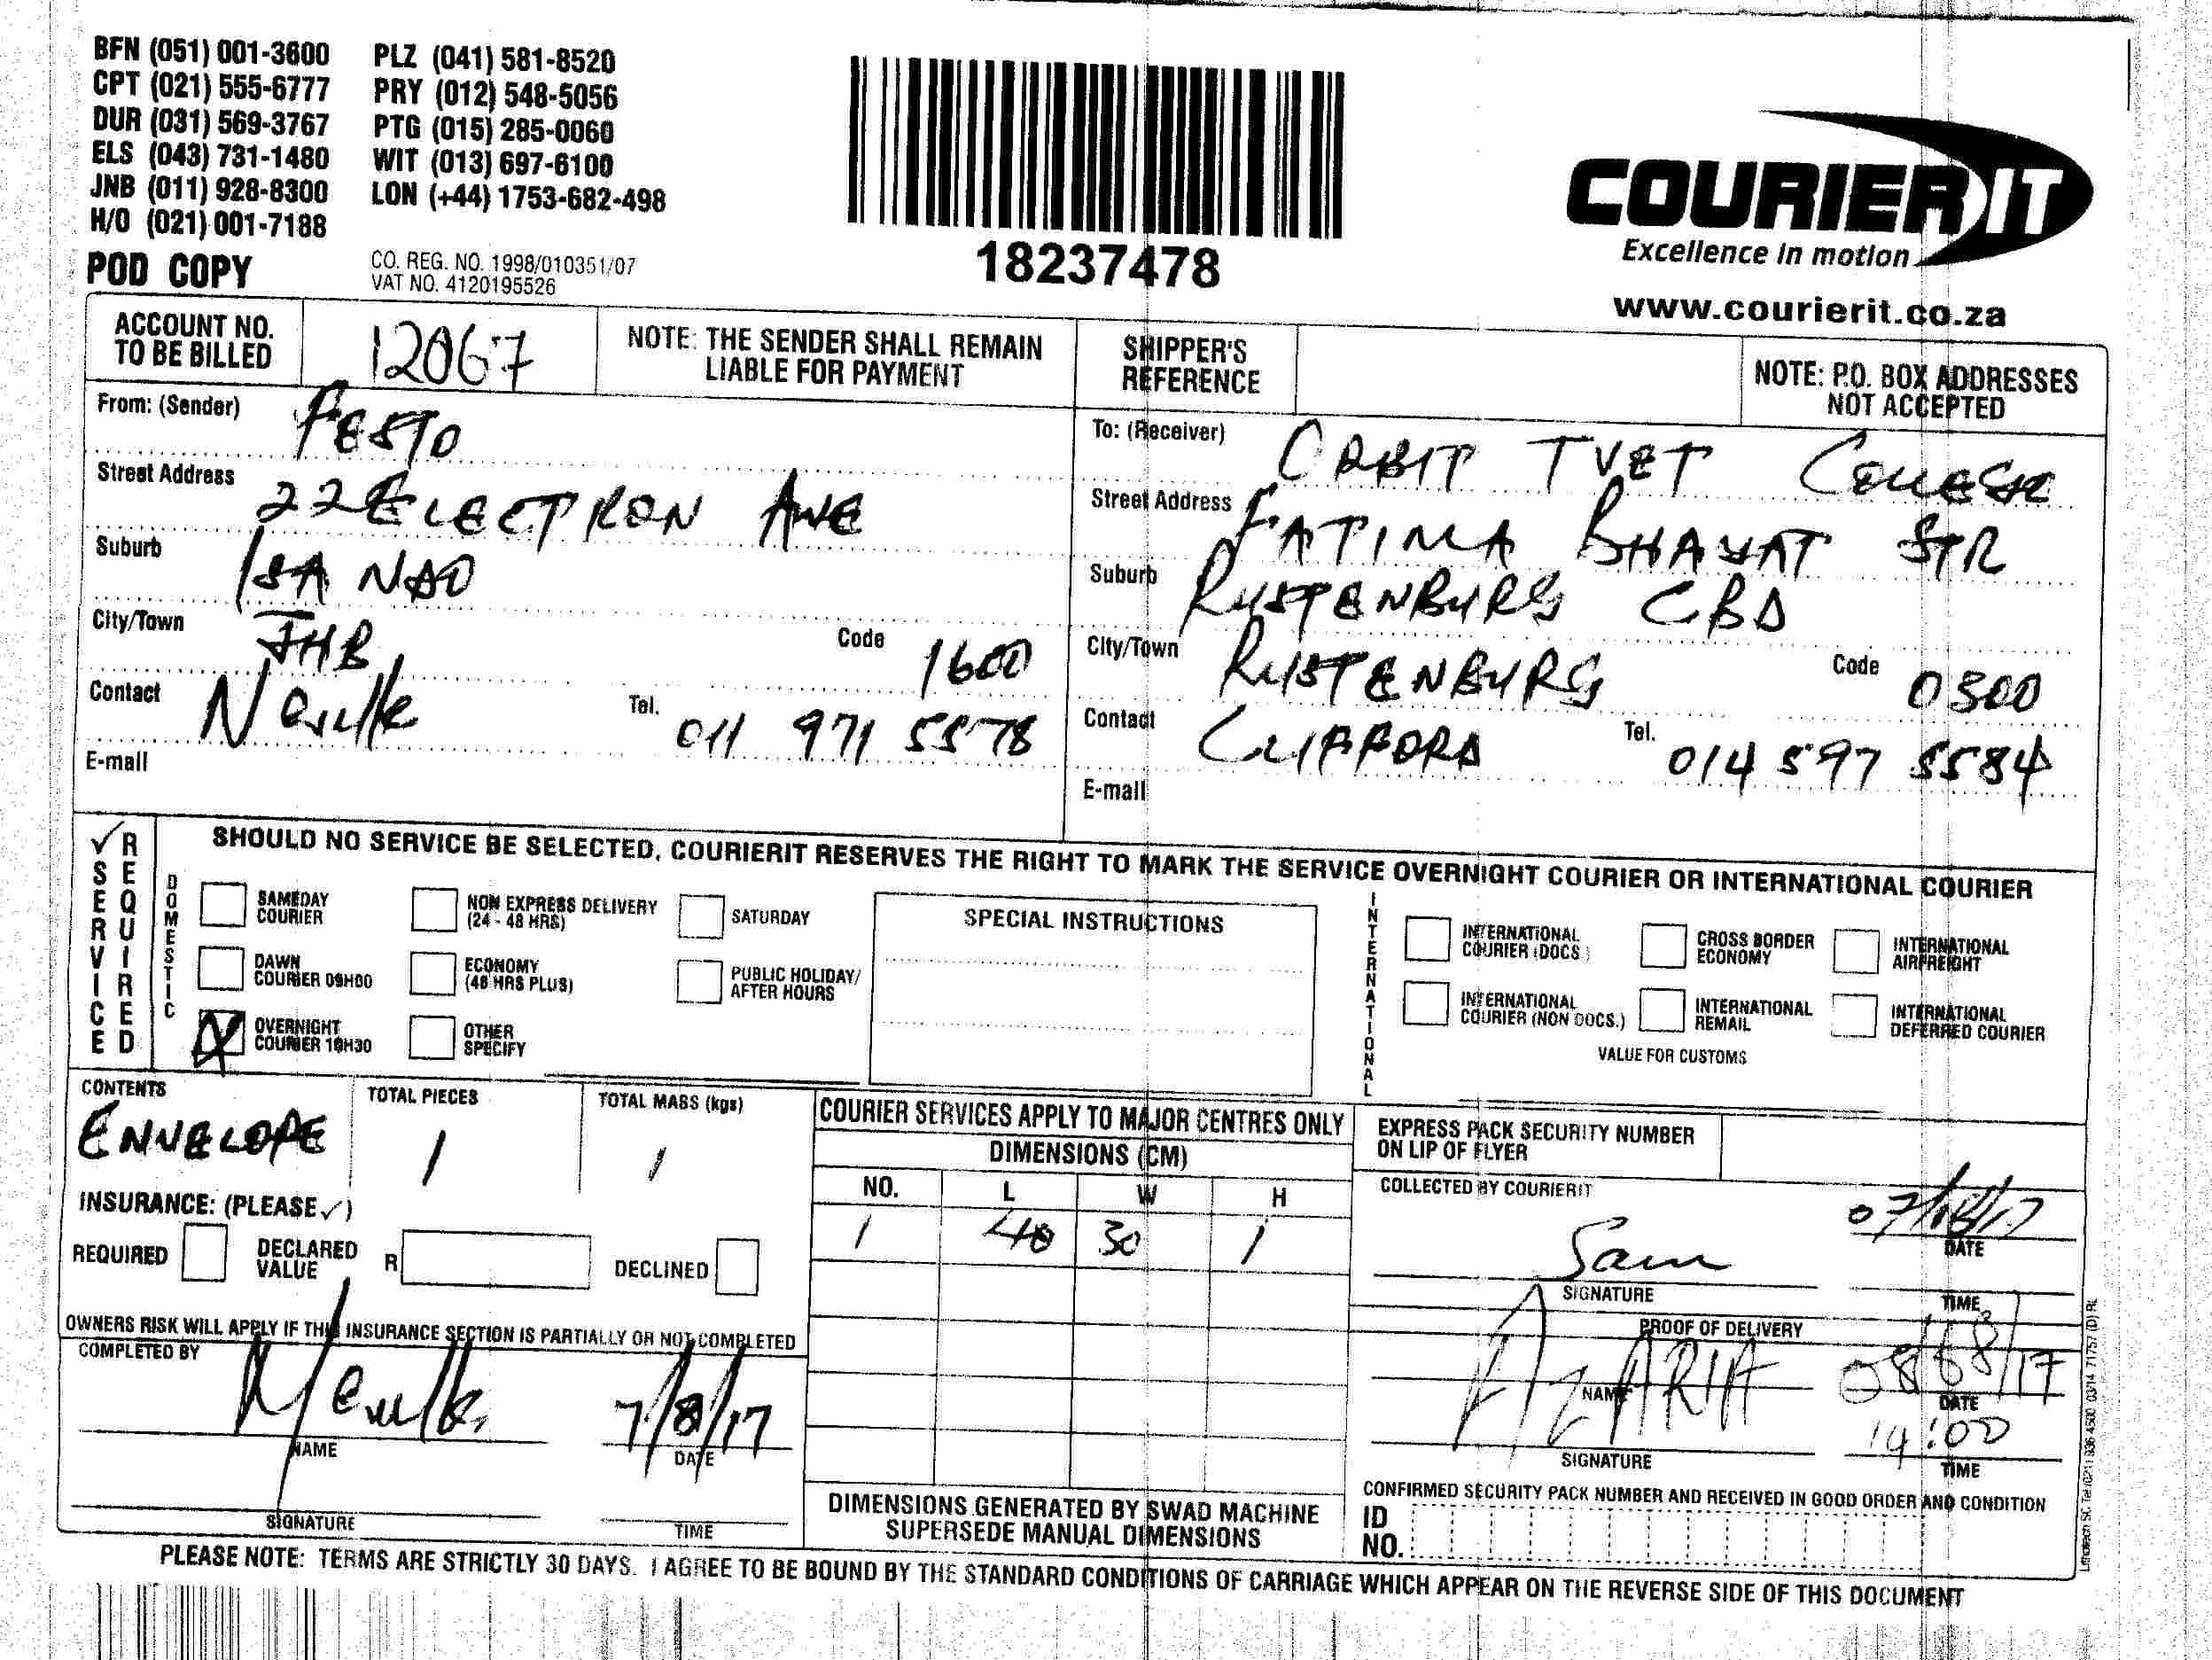 BFN (051) 001-3600
CPT (021) 555-6777
DUR (031) 569-3767
ELS (043) 731-1480
JNB (011) 928-8300
H/O (021) 001-7188
PLZ (041) 581-8520
PRY (012) 548-5056
PTG (015) 285-0060
WIT (013) 697-6100
LON (+44) 1753-682-498
POD COPY
CO. REG. NO. 1998/010351/07
VAT NO. 4120195526
18237478
COURIER IT
Excellence in motion
www.courierit.co.za
ACCOUNT NO.
TO BE BILLED
12067
NOTE: THE SENDER SHALL REMAIN
LIABLE FOR PAYMENT
SHIPPER'S
REFERENCE
NOTE: P.O. BOX ADDRESSES
NOT ACCEPTED
From: (Sender) FESTO
Street Address 22 ELECTRON AVE
Suburb ISANDO
City/Town JHB Code 1600
Contact Neville Tel. 011 971 5578
E-mail
To: (Receiver) ORBIT TVET COLLEGE
Street Address FATIMA BHAYAT STR
Suburb RUSTENBURG CBD
City/Town RUSTENBURG Code 0300
Contact CLIFFORD Tel. 014 597 5584
E-mail
SERVICE REQUIRED
SHOULD NO SERVICE BE SELECTED, COURIERIT RESERVES THE RIGHT TO MARK THE SERVICE OVERNIGHT COURIER OR INTERNATIONAL COURIER
DOMESTIC
SAMEDAY
COURIER
NON EXPRESS DELIVERY
(24 - 48 HRS)
SATURDAY
DAWN
COURIER 09H00
ECONOMY
(48 HRS PLUS)
PUBLIC HOLIDAY/
AFTER HOURS
OVERNIGHT
COURIER 10H30
OTHER
SPECIFY
SPECIAL INSTRUCTIONS
INTERNATIONAL
INTERNATIONAL
COURIER (DOCS.)
CROSS BORDER
ECONOMY
INTERNATIONAL
AIRFREIGHT
INTERNATIONAL
COURIER (NON DOCS.)
INTERNATIONAL
REMAIL
INTERNATIONAL
DEFERRED COURIER
VALUE FOR CUSTOMS
CONTENTS
ENVELOPE
TOTAL PIECES
1
TOTAL MASS (kgs)
1
INSURANCE: (PLEASE ✓)
REQUIRED
DECLARED
VALUE
R
DECLINED
OWNERS RISK WILL APPLY IF THIS INSURANCE SECTION IS PARTIALLY OR NOT COMPLETED
COMPLETED BY
Neville
NAME
7/8/17
DATE
SIGNATURE
TIME
COURIER SERVICES APPLY TO MAJOR CENTRES ONLY
DIMENSIONS (CM)
NO. L W H
1 40 30 1
DIMENSIONS GENERATED BY SWAD MACHINE
SUPERSEDE MANUAL DIMENSIONS
EXPRESS PACK SECURITY NUMBER
ON LIP OF FLYER
COLLECTED BY COURIERIT
Sam
07/08/17
DATE
SIGNATURE
TIME
PROOF OF DELIVERY
AZARIA
NAME
08/08/17
DATE
14:00
SIGNATURE
TIME
CONFIRMED SECURITY PACK NUMBER AND RECEIVED IN GOOD ORDER AND CONDITION
ID
NO.
PLEASE NOTE: TERMS ARE STRICTLY 30 DAYS. I AGREE TO BE BOUND BY THE STANDARD CONDITIONS OF CARRIAGE WHICH APPEAR ON THE REVERSE SIDE OF THIS DOCUMENT